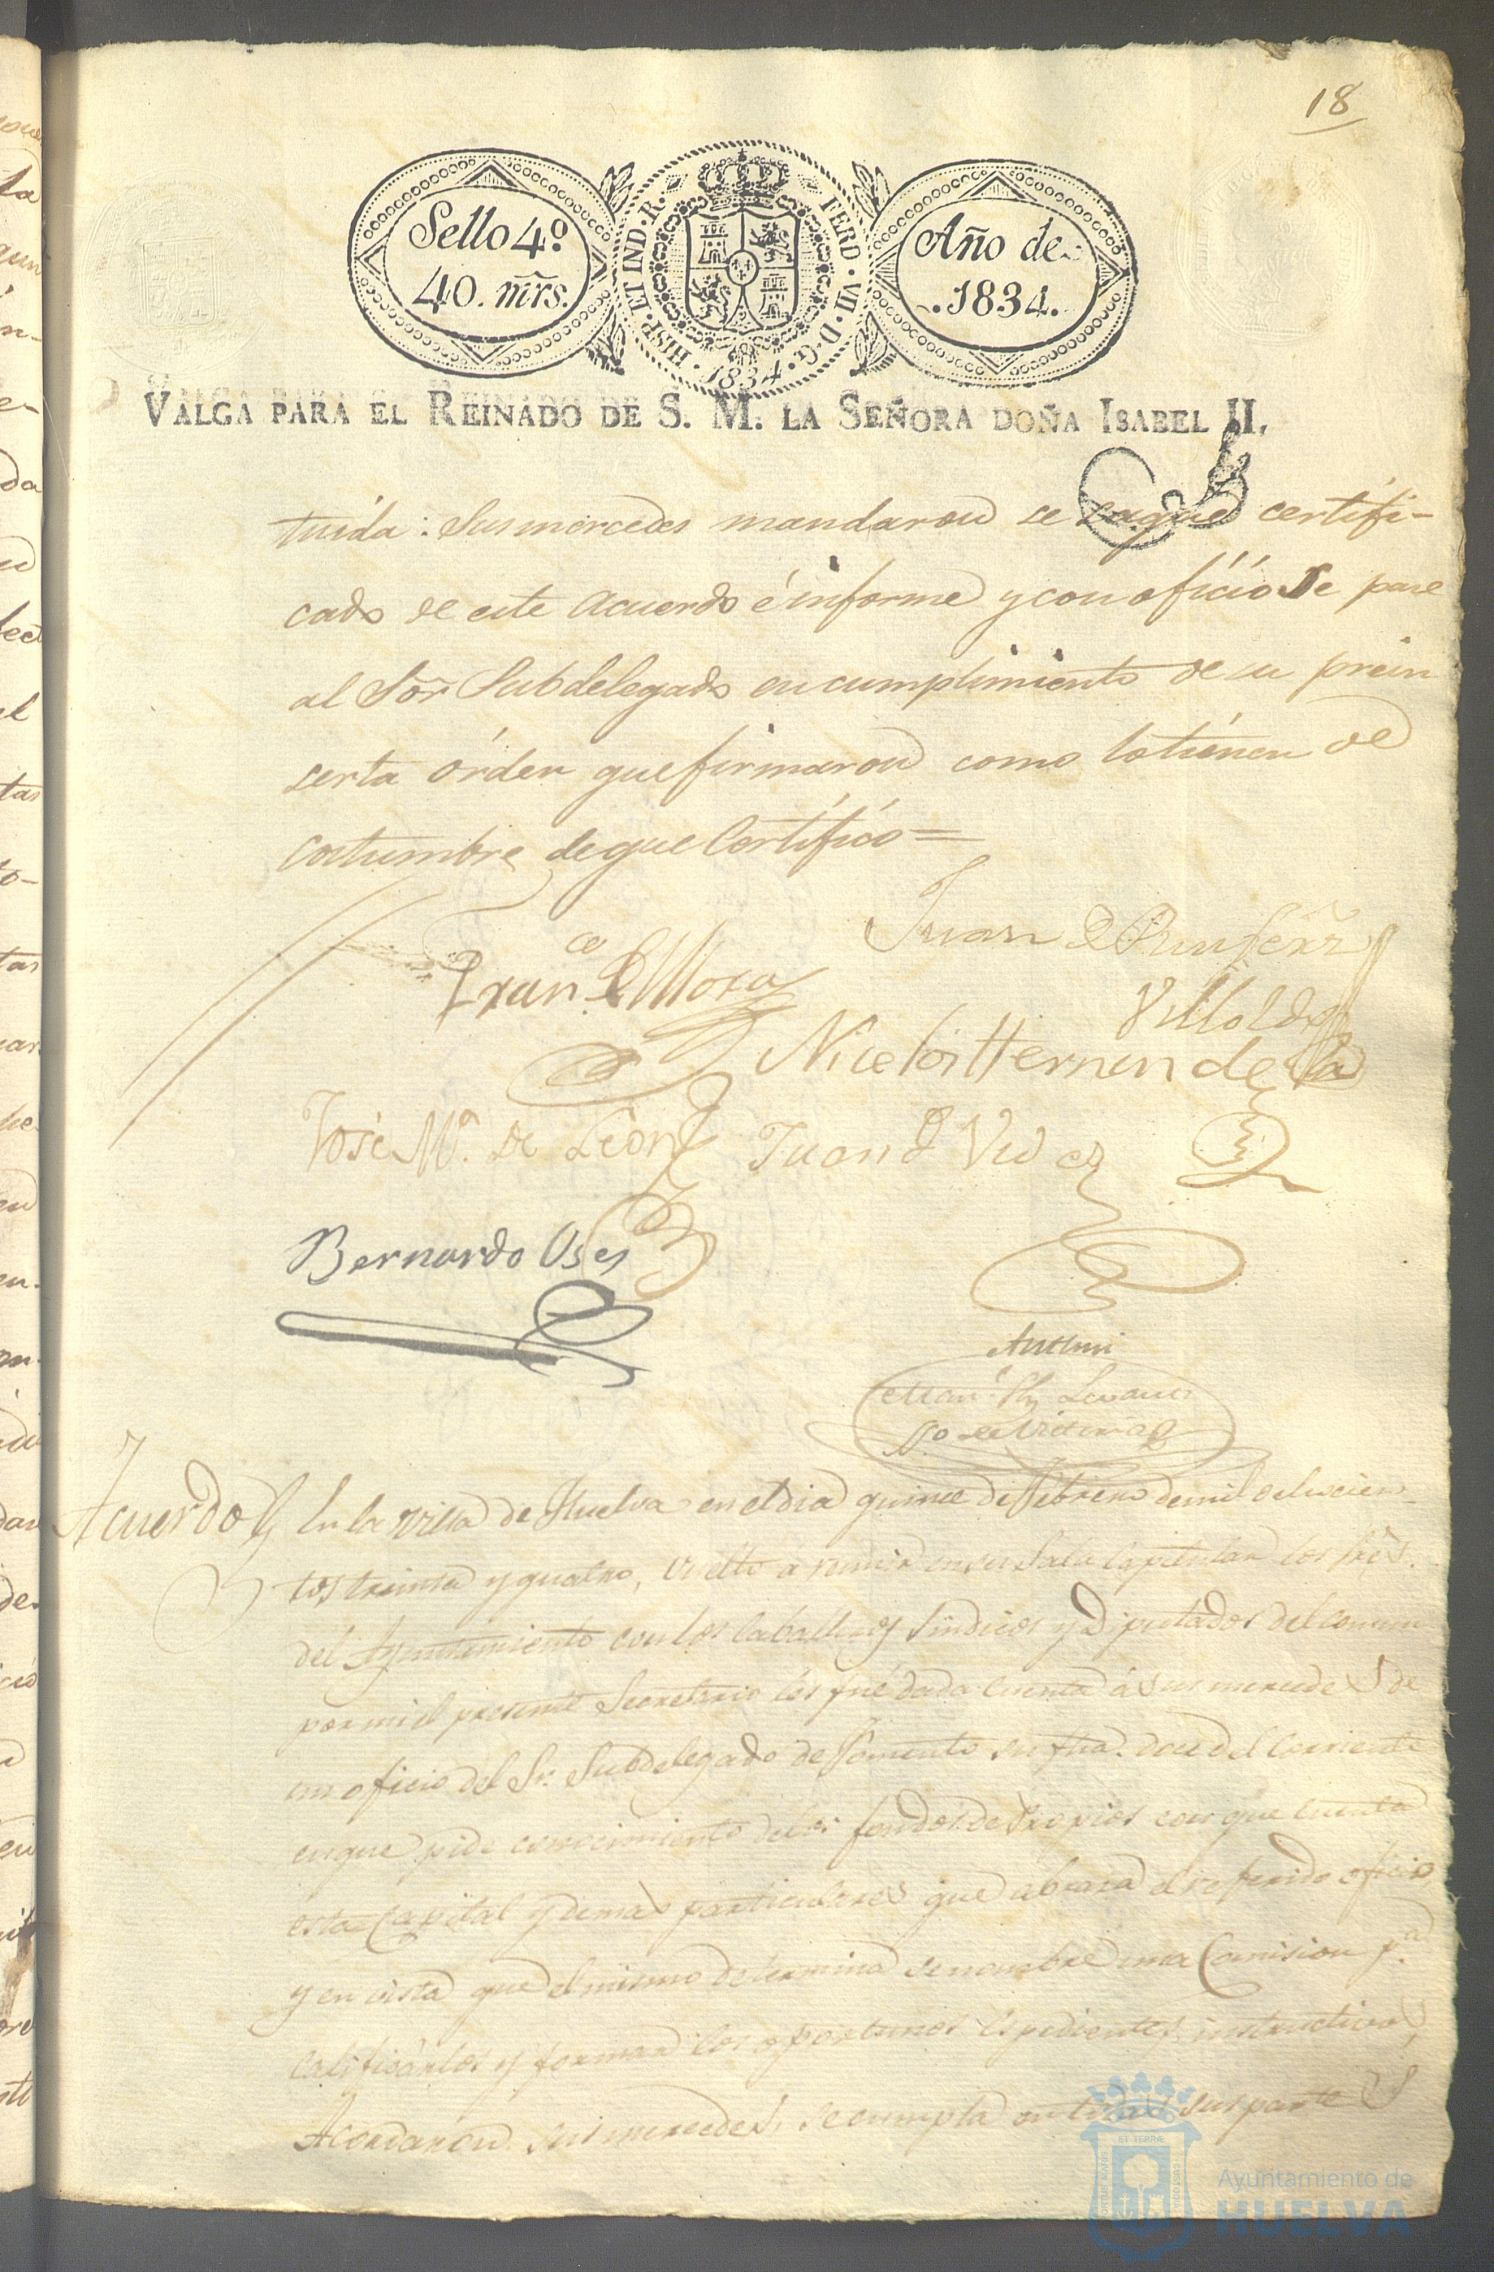 18
Sello 4º
40. mrs.
HISP. ET IND. R. FERD. VII. D. G. 1834.
Año de
1834.
VALGA PARA EL REINADO DE S. M. LA SEÑORA DOÑA ISABEL II.
tuida: Sus mercedes mandaron se saque certifi-
cado de este acuerdo é informe y con oficio se pase
al Sor Subdelegado en cumplimiento de su prein
serta órden que firmaron como lo tienen de
costumbre de que Certifico =
Juan
Franco Mora
Villolds
Hernandez
José Mª. de León
Juan Videz
Bernardo Uses
Acuerdo En la villa de Huelva en el dia quince de Febrero de mil ochocien-
tos treinta y quatro, vuelto á reunir en su Sala Capitular los Sres.
del Ayuntamiento con los Caballeros Sindicos y Diputados del comun
por mi el presente Secretario les fué dada cuenta á sus mercedes de
un oficio del Sr. Subdelegado de Fomento su fha. doce del corriente
en que pide conocimiento de los fondos de Propios con que cuenta
esta Capital y demas particulares que abraza el referido oficio
y en vista que el mismo determina se nombre una Comision pª
calificarlos y formar los oportunos espedientes instructivos,
Acordaron sus mercedes, se cumpla en todas sus partes
Ayuntamiento de
HUELVA